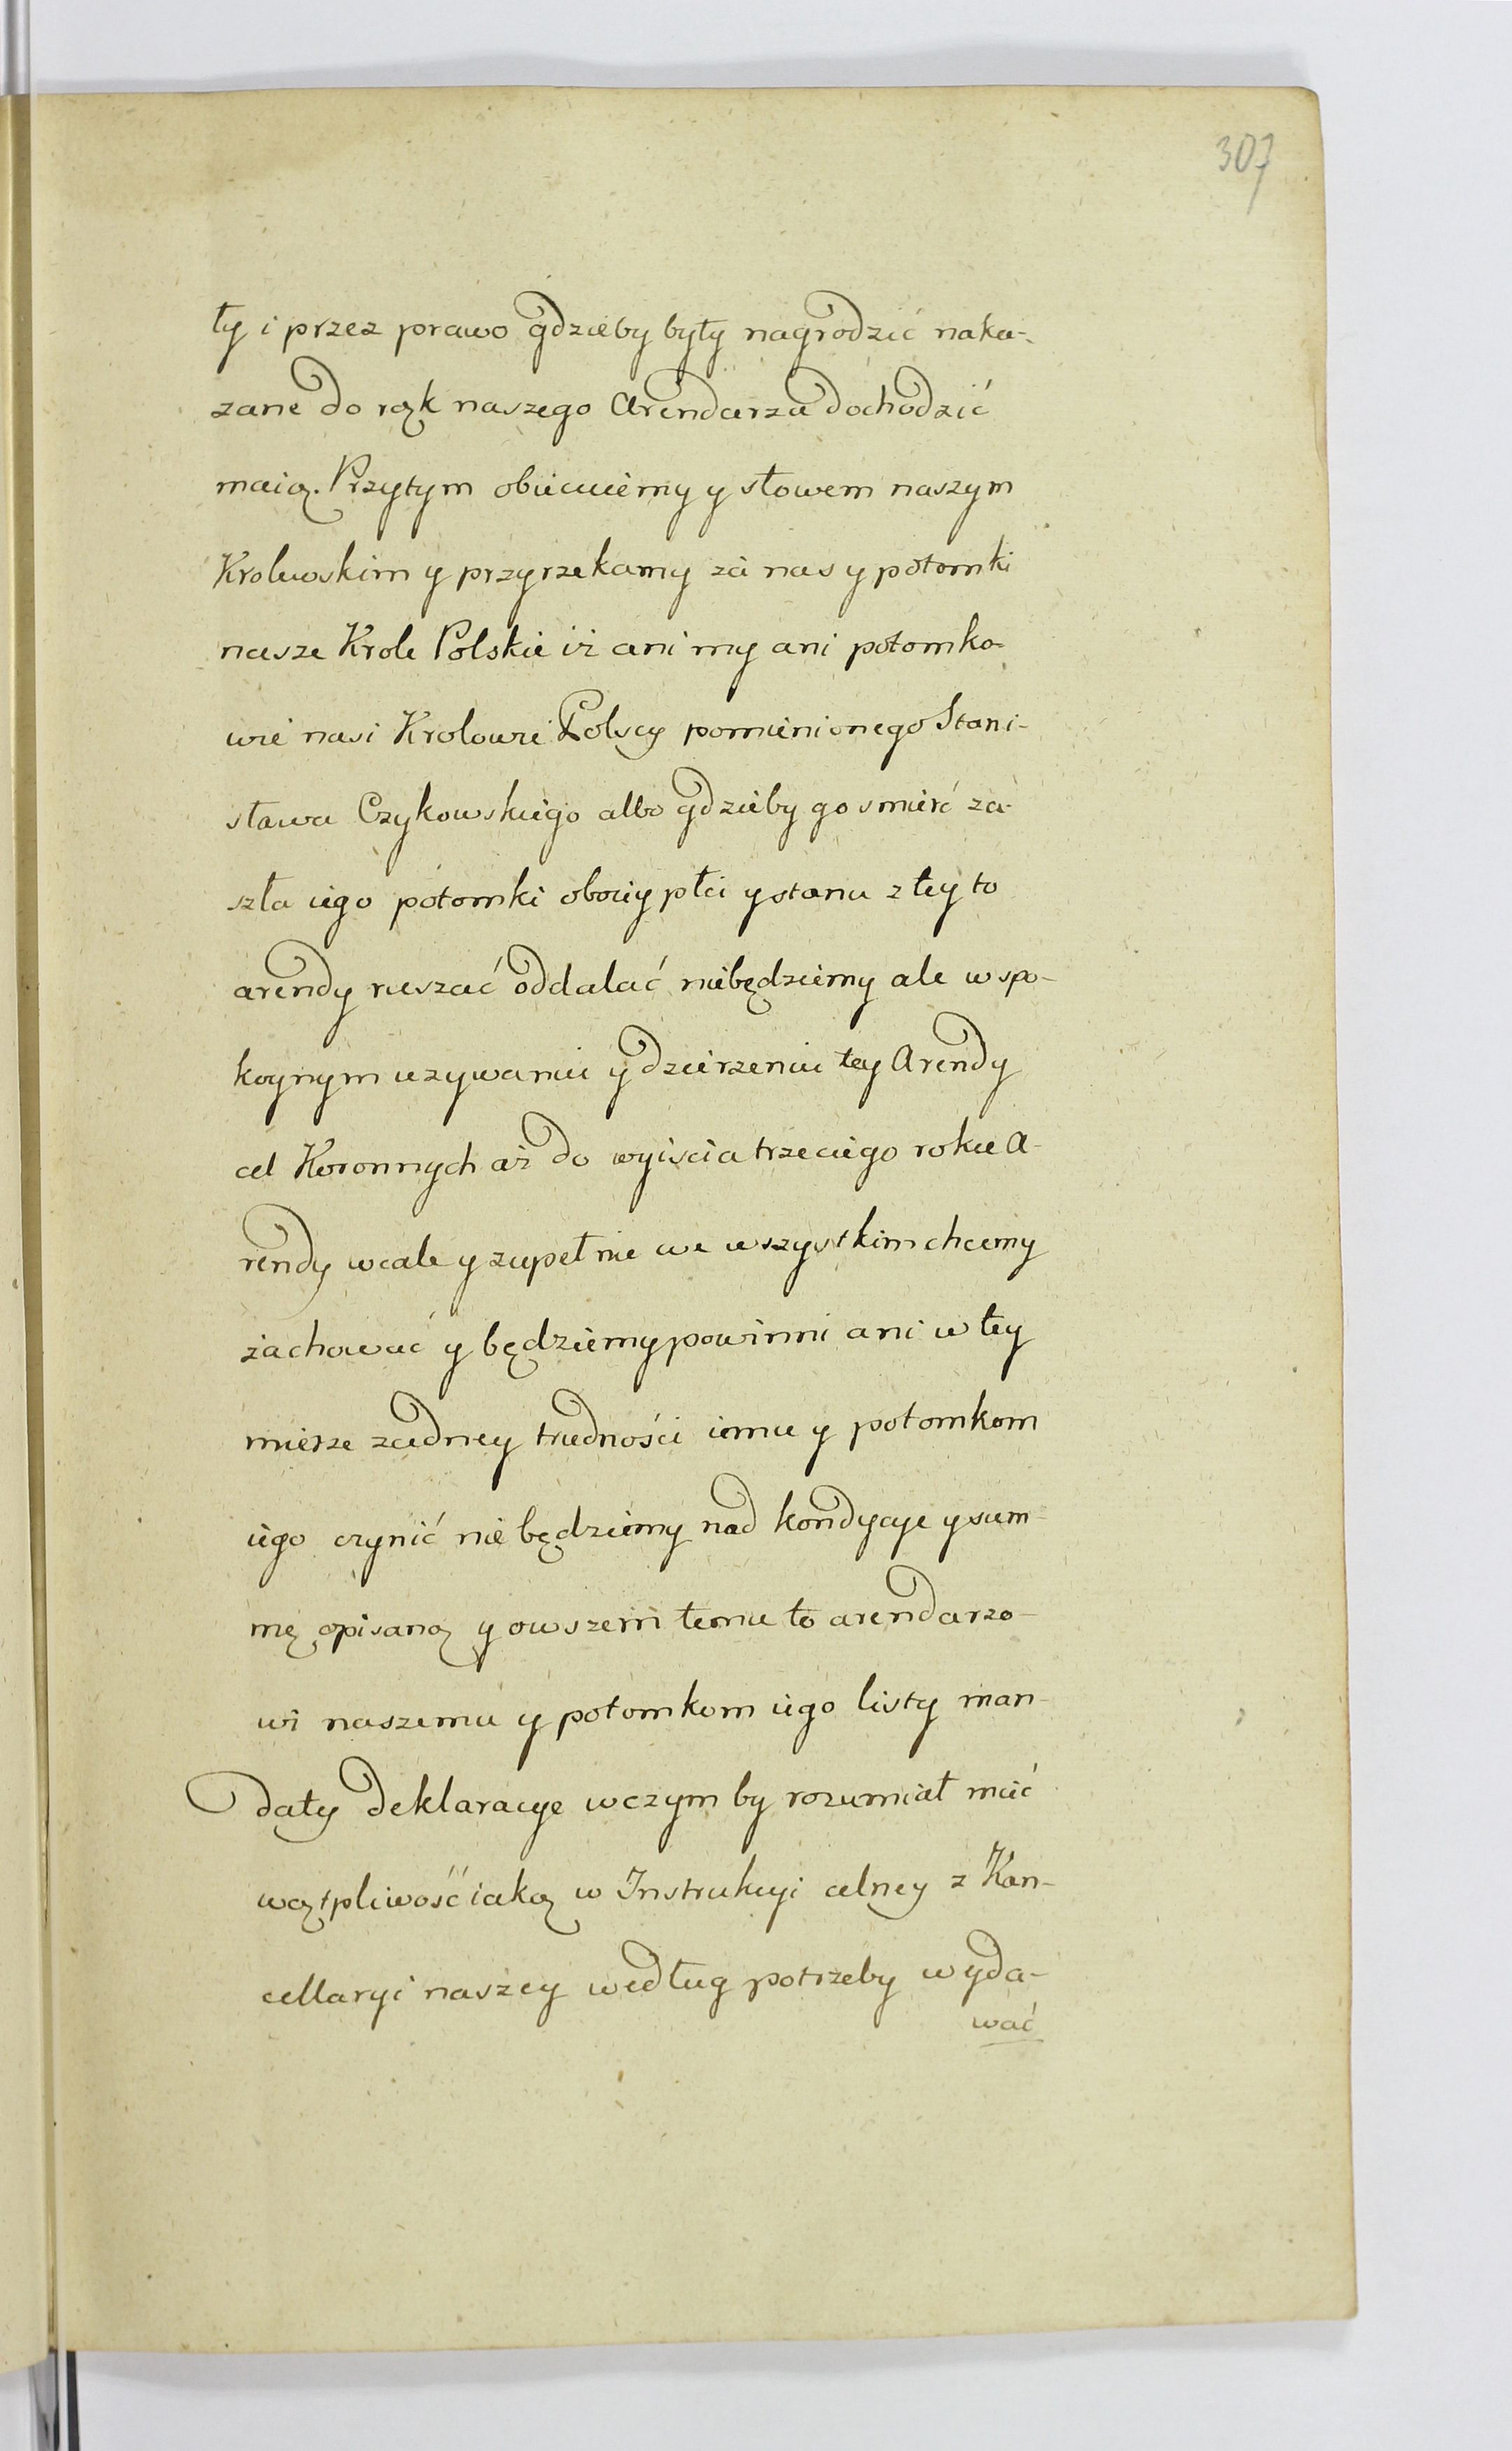 307
ty i przez prawo gdzieby były nagrodzić naka-
zane do rąk naszego Arendarza dochodzić
maią. Przytym obiecuiemy y słowem naszym
Krolewskim y przyrzekamy za nas y potomki
nasze Krole Polskie iż ani my ani potomko-
wie nasi Krolowie Polscy pomienionego Stani-
sława Czykowskiego albo gdzieby go smierć za-
szła iego potomki oboiey płci y stanu z tey to
arendy ruszać oddalać niebędziemy ale w spo-
koynym uzywaniu y dzierzeniu tey Arendy
cel Koronnych aż do wyiscia trzeciego roku A-
rendy wcale y zupełnie we wszystkim chcemy
zachować y będziemy powinni ani w tey
mierze zadney trudności iemu y potomkom
iego czynić nie będziemy nad kondycye y sum-
mę opisaną y owszem temu to arendarzo-
wi naszemu y potomkom iego listy man-
daty deklaracye w czym by rozumiał mieć
wątpliwość iaką w Instrukcyi celney z Kan-
cellaryi naszey według potrzeby wyda-
wać